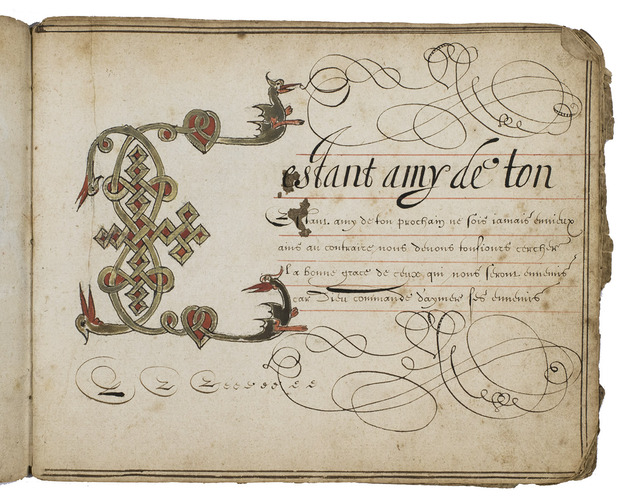 estant amy de ton
Estant amy de ton prochain ne sois iamais ennieux
ains au contraire nous deuons tousiours cercher
la bonne grace de ceux qui nous seront ennemis
car Dieu commande daymer ses ennemis